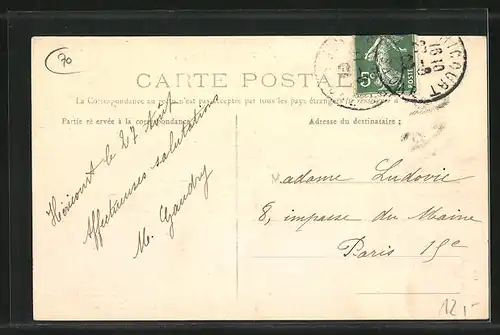 70
CARTE POSTALE
La Correspondance au recto n'est pas acceptée par tous les pays étrangers
Partie réservée à la correspondance
Adresse du destinataire ;
5c
16 10
Héricourt le 27 Août
Affectueuses salutations
M. Gaudry
Madame Ludovic
8, impasse du Maine
Paris 15e
12,-